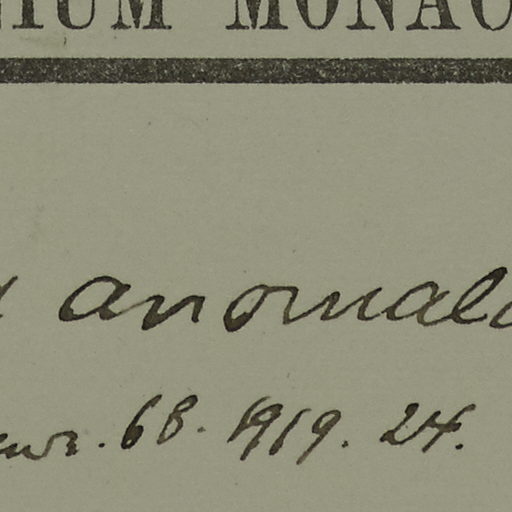 IUM MONAC
anomal
68. 1919. 24.